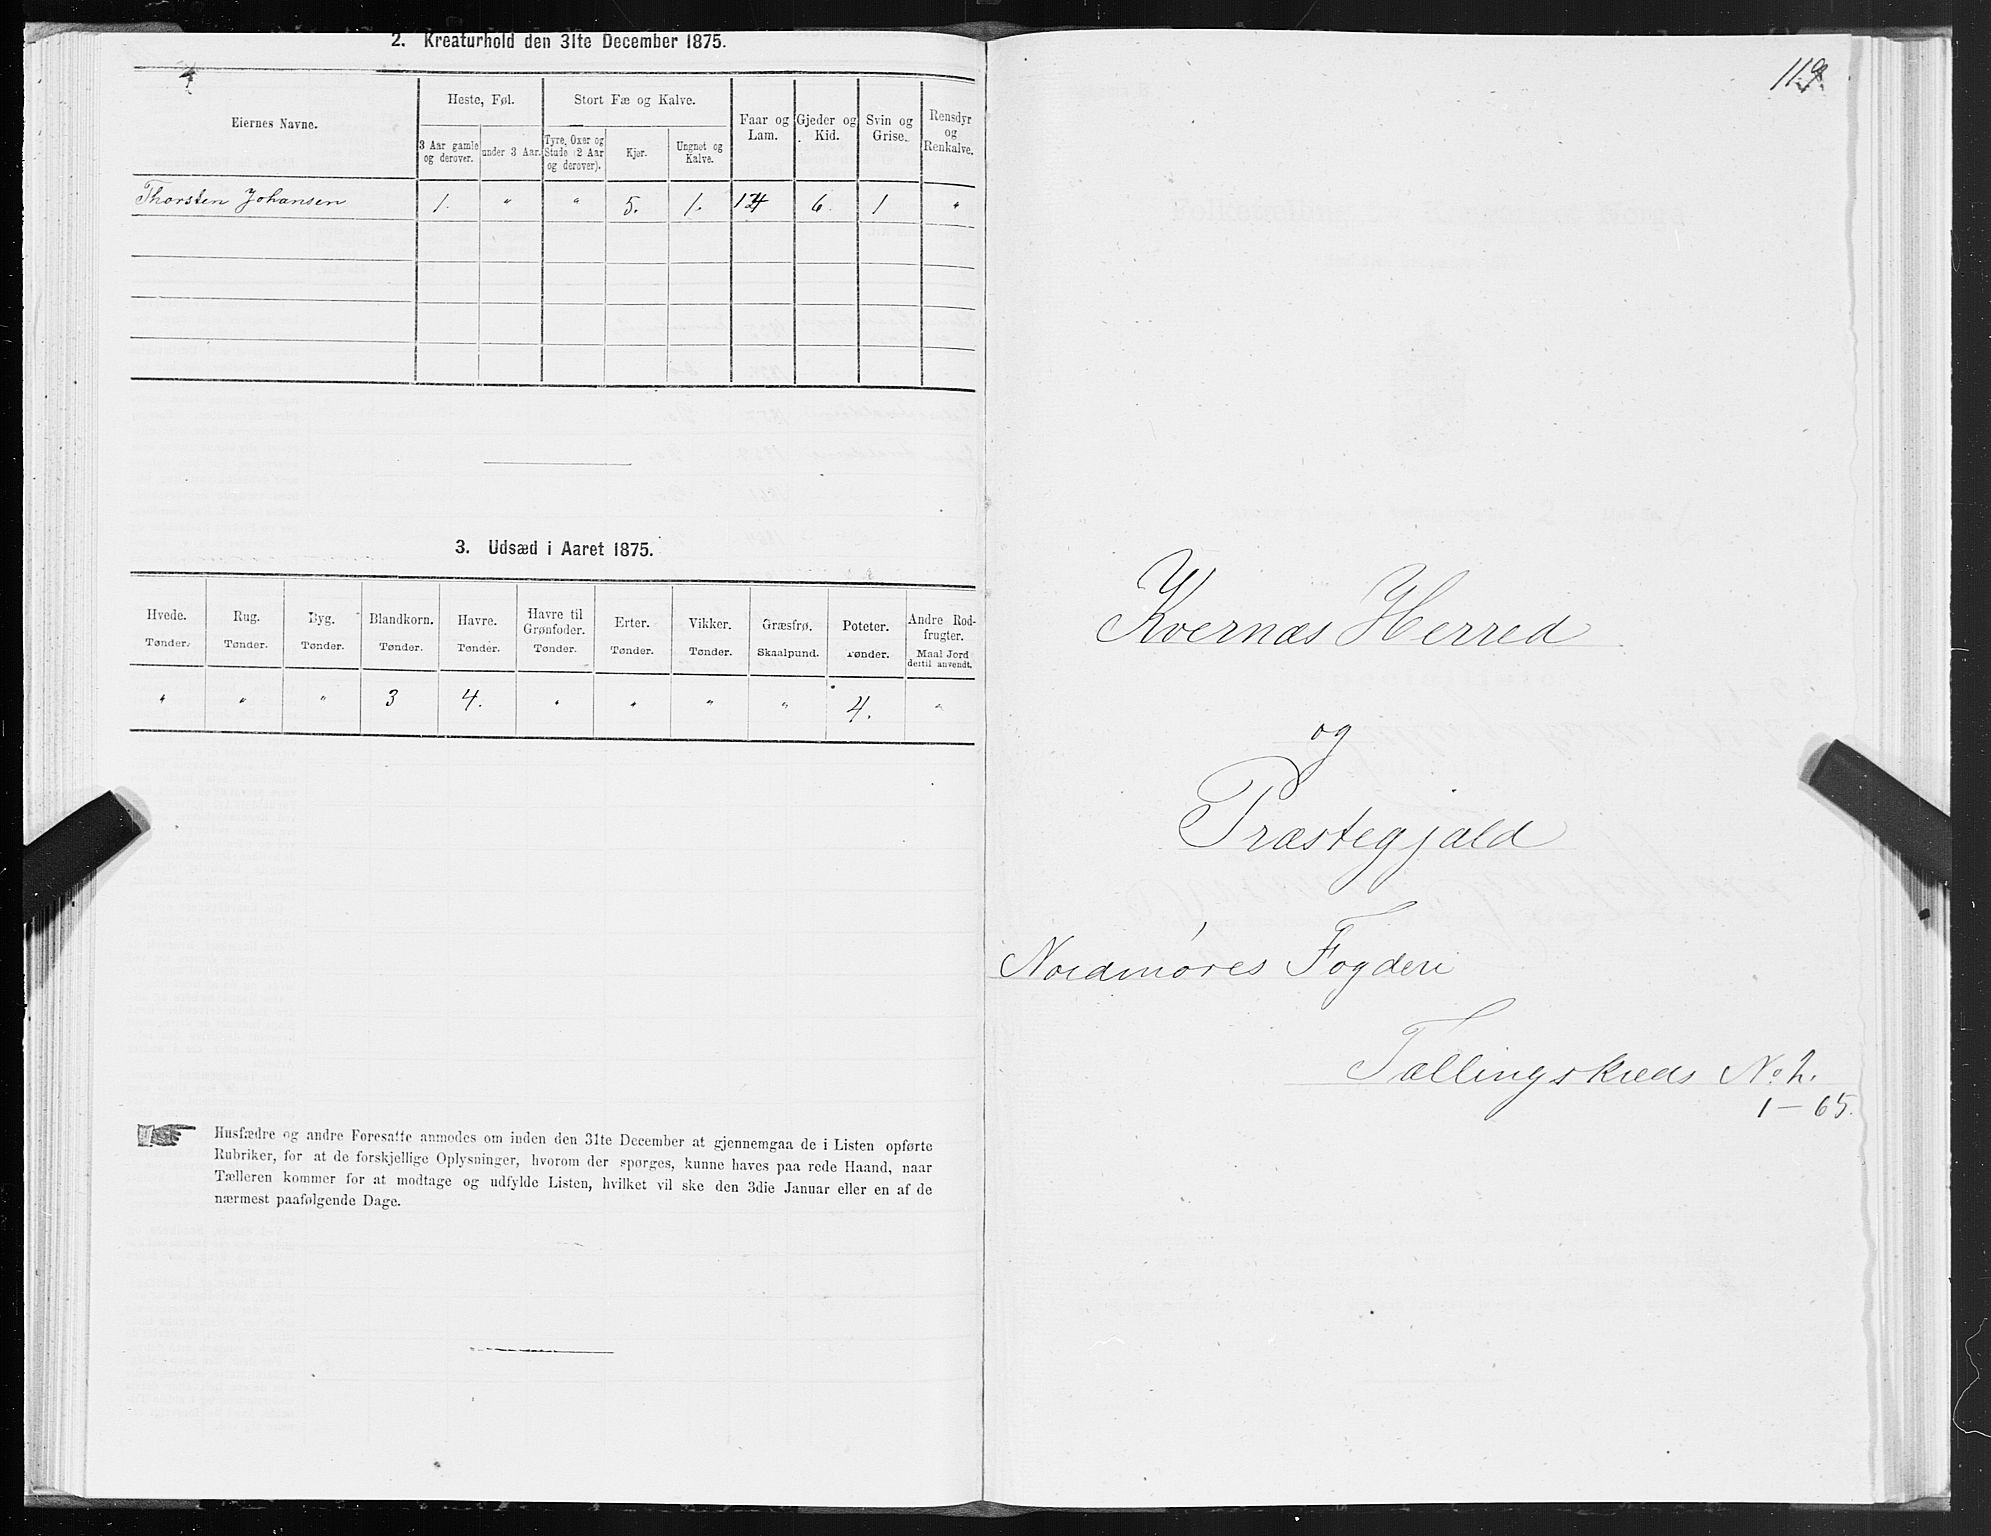 2. Kreaturhold den 31te December 1875.
Eiernes Navne.
Heste, Føl.
Stort Fæ og Kalve.
Faar og Lam.
Gjeder og Kid.
Svin og Grise.
Rensdyr og Renkalve.
3 Aar gamle og derover.
under 3 Aar.
Tyre, Oxer og Stude (2 Aar og derover).
Kjør.
Ungnøt og Kalve.
Thorsten Johansen 1. " " 5. 1. 6. 1 "
3. Udsæd i Aaret 1875.
Hvede. Rug. Byg. Blandkorn. Havre. Havre til Grønfoder. Erter. Vikker. Græsfrø. Poteter. Andre Rodfrugter.
Tønder. Tønder. Tønder. Tønder. Tønder. Tønder. Tønder. Tønder. Skaalpund. Tønder. Maal Jord dertil anvendt.
" " " 3 4. " " " " 4. "
Husfædre og andre Foresatte anmodes om inden den 31te December at gjennemgaa de i Listen opførte
Rubriker, for at de forskjellige Oplysninger, hvorom der spørges, kunne haves paa rede Haand, naar
Tælleren kommer for at modtage og udfylde Listen, hvilket vil ske den 3die Januar eller en af de
nærmest paafølgende Dage.
119
Kvernæs Herred
og
Præstegjæld
Nordmøres Fogderi
Tællingskreds No 2.
1–65.